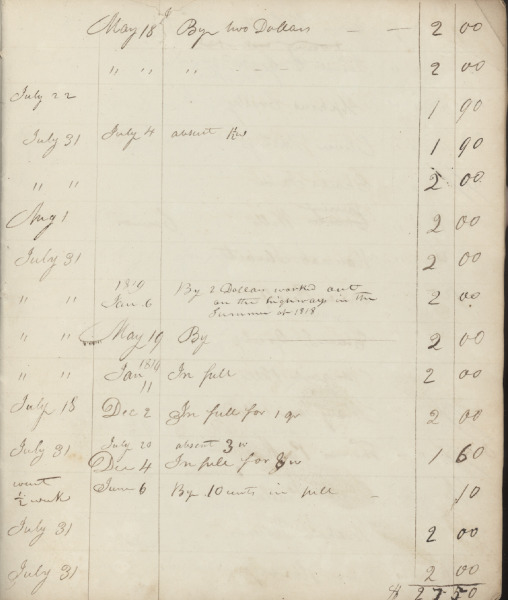 May 18 By two Dollars — — 2 00
" " " - - 2 00
July 22 1 90
July 31 July 4 absent 1 w 1 90
" " 2 00
Aug 1 2 00
July 31 2 00
" " 1819 Jan 6 By 2 Dollars worked out
on the highways in the
Summer of 1818 2 00
" " May 19 By 2 00
" " Jan 1819 11 In full 2 00
July 18 Dec 2 In full for 1 qr 2 00
July 31 July 20 absent 3 w
Dec 4 In full for w 1 60
went
½ week June 6 By .10 cents in full — 10
July 31 2 00
July 31 2 00
$ 27 50